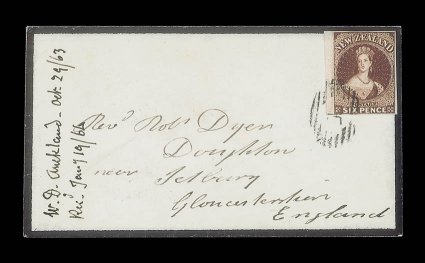 W. D. Auckland - Oct. 29/63
Rec.d Jany 19/64
NEW ZEALAND
SIX PENCE
Revd Robt Dyer
Doughton
near Tetbury
Gloucestershire
England